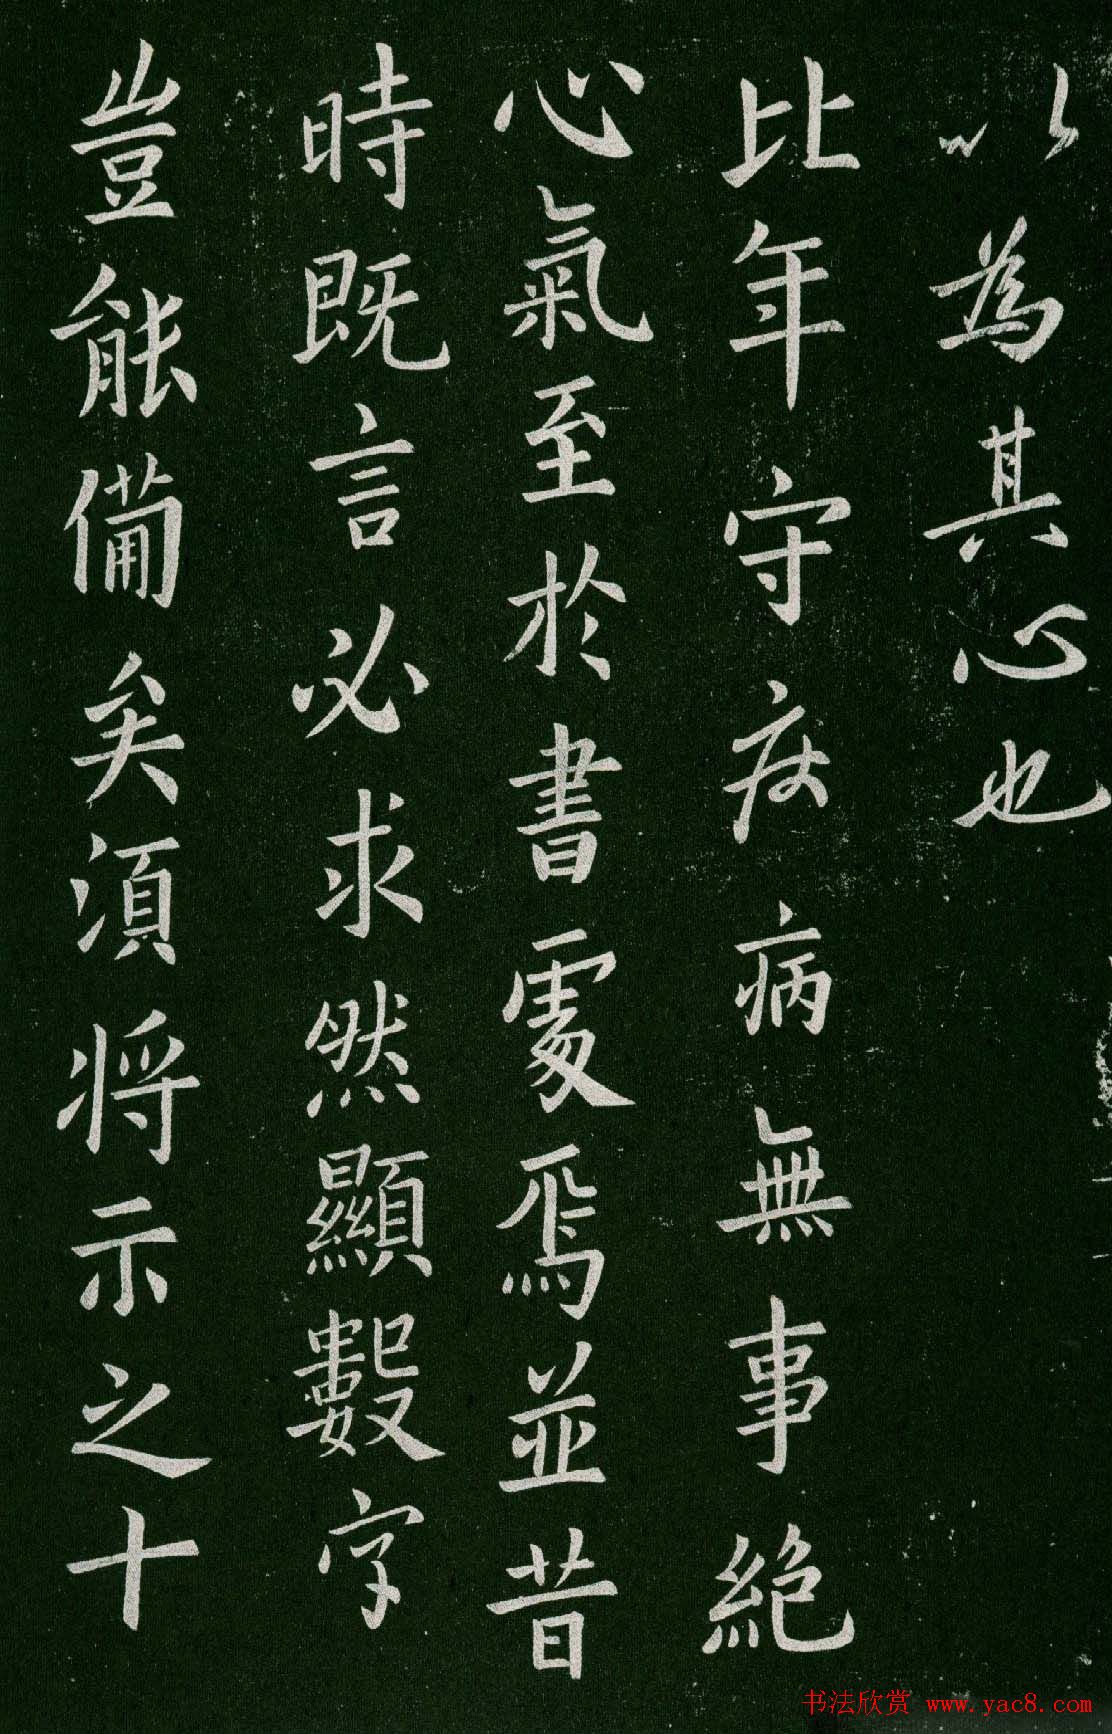 以為其心也
比年守疾病無事絕
心氣至於書處焉並昔
時既言必求然顯數字
豈能備矣須将示之十
书法欣赏 www.yac8.com